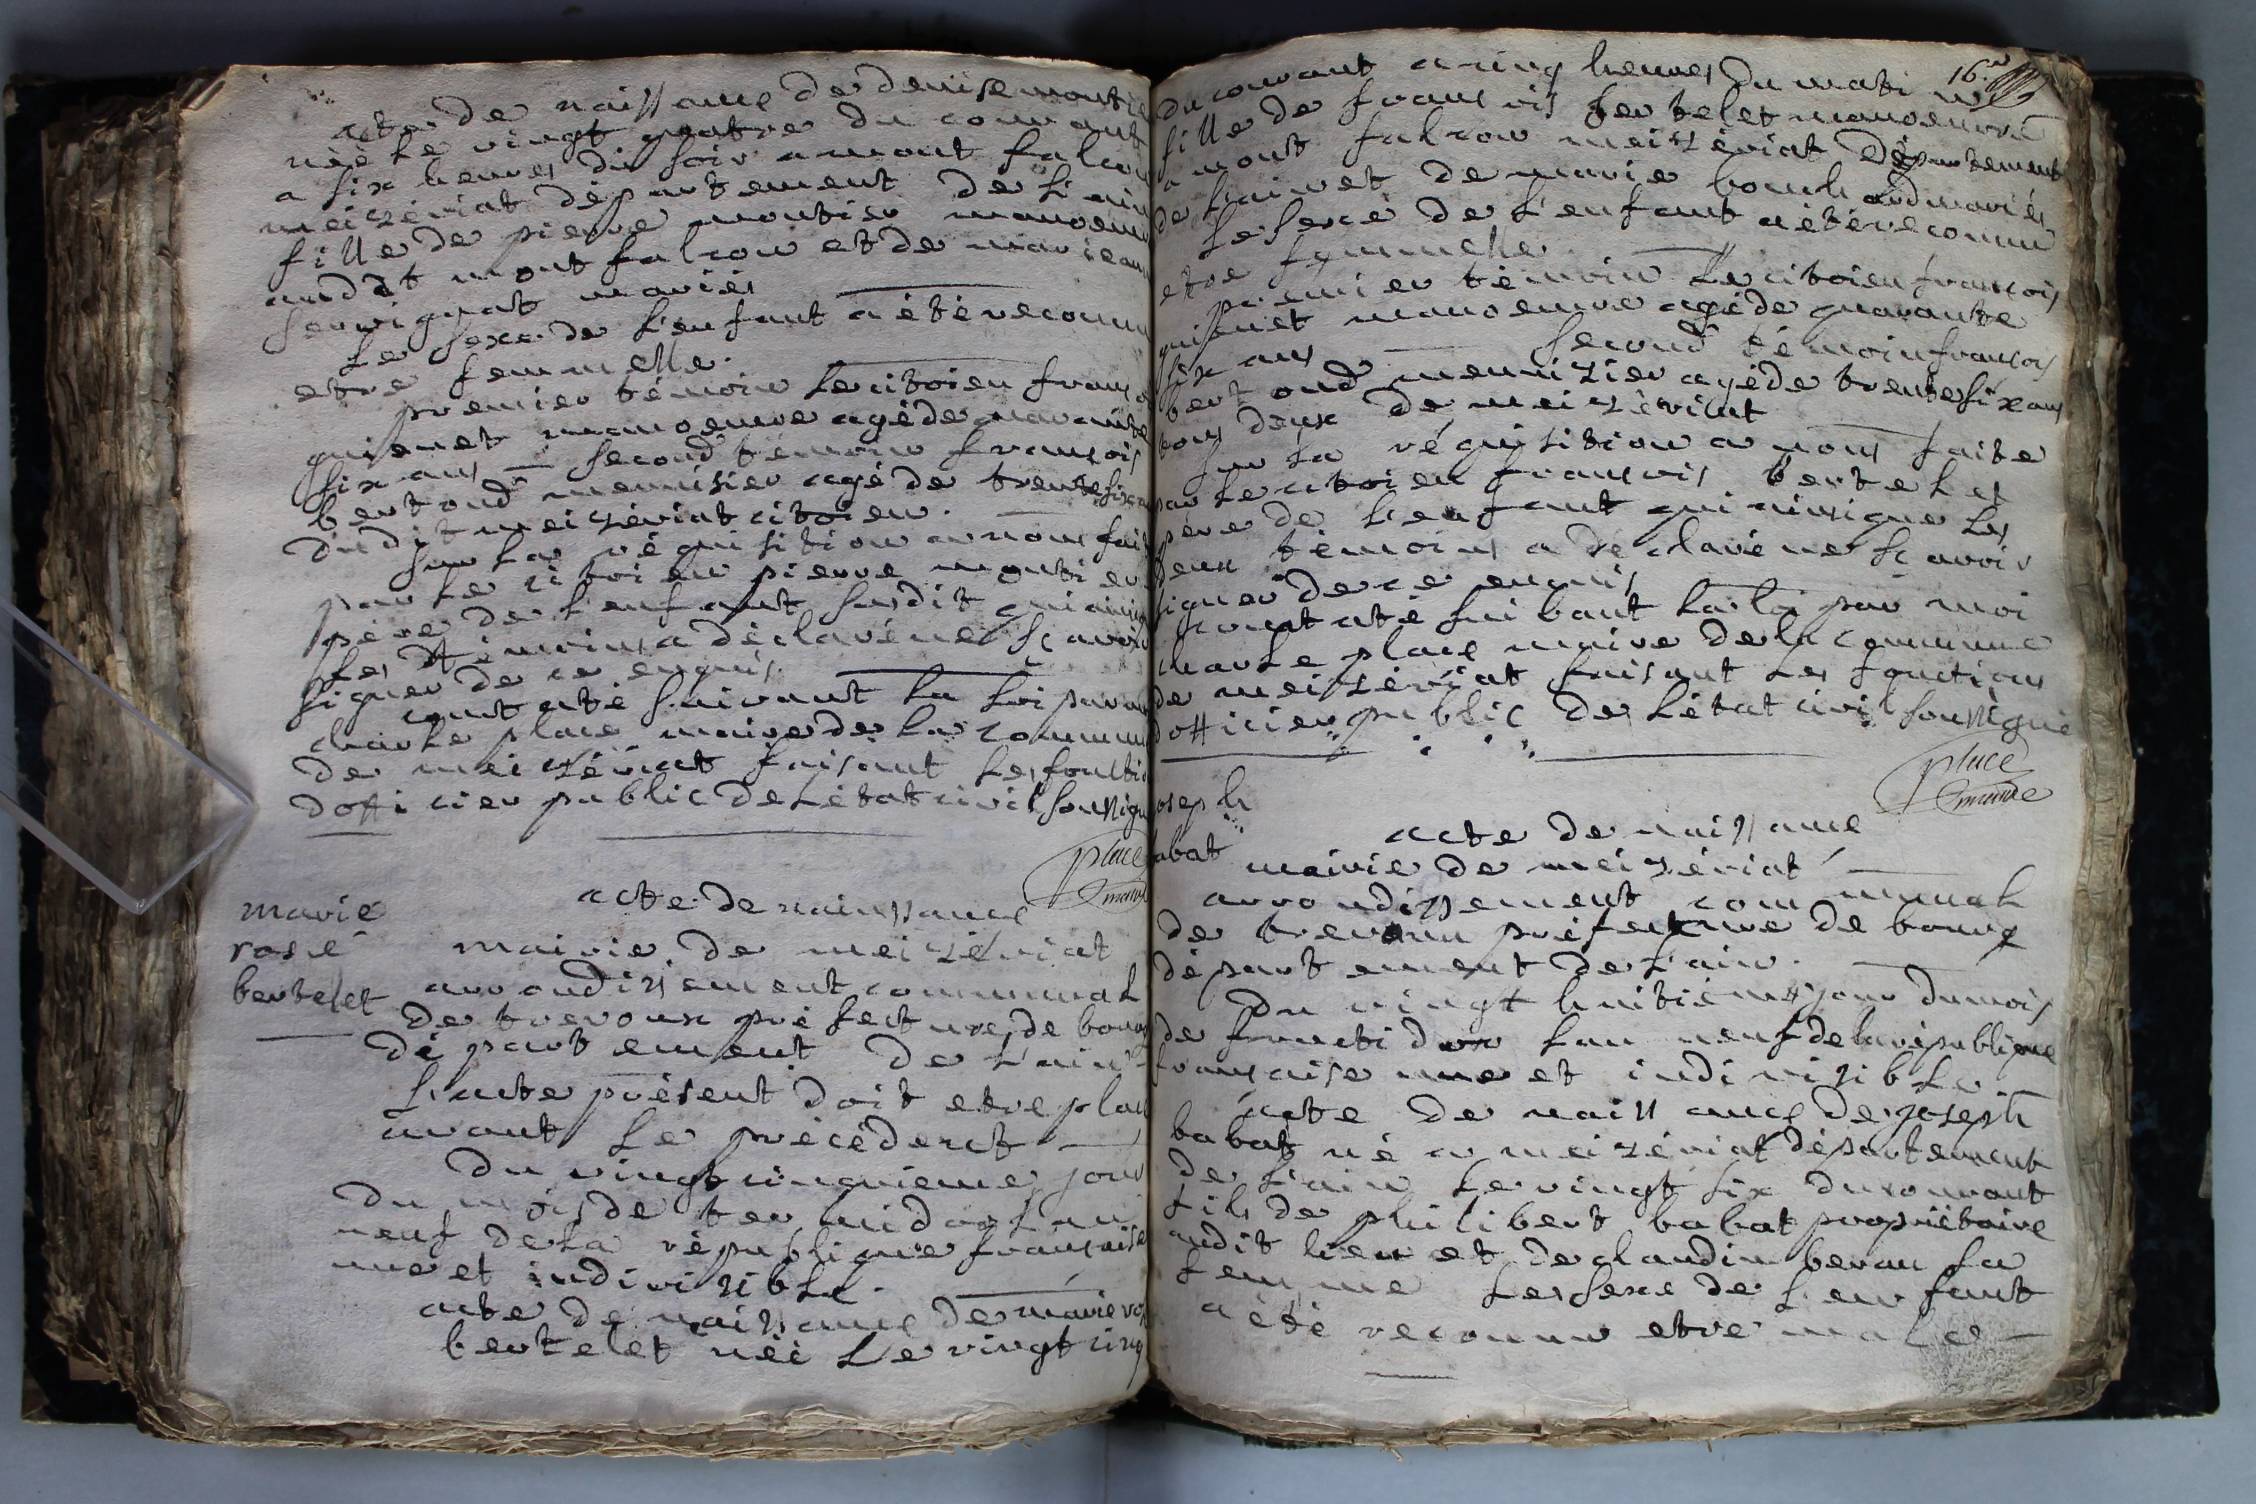 acte de naissance de denise montie
néè le vingt quatre du courant
a six heures du soir a mont falcon
meizériat département de l'ain
fille de pierre montier manoeuv
audit mont falcon et de marie ann
mariés
le sexe de l'enfant a été reconnu
etre femmelle.
premier témoin le citoien franço
guienet manoeuvre agé de quarante
six ans second témoin françois
bertoud menuisier agé de trente six an
dudit meizériat citoien.
sur la réquisition a nous fait
par le citoien pierre montier
père de l'enfant susdit qui ainsi
les témoins a déclaré ne sçavoir
signer de ce enquis.
constaté suivant la loi par
charle place maire de la commun
de meizériat faisant les foncti
dofficier public de létat civil soussigné
place
maire
marie
rose
bertelet
acte de naissance
mairie de meizériat
arrondissement communal
de trevoux préfecture de bourg
département de l'ain
l'acte présent doit etre plac
avant le précédent
du vingt cinquieme jour
du mois de termidor l'an
neuf de la république française
une et indivizible.
acte de naissance de marie ros
bertelet néè le vingt cinq
16.
du courant a cinq heures du mati
fille de françois bertelet manoeuvre
a mont falcon meizériat département
de l'ain et de marie mariés
le sexe de l'enfant a été reconnu
etre femmelle
premier témoin le citoien françois
guienet manoeuvre agé de quarante
six ans second témoin françois
bertoud menuizier agé de trente six ans
tous deux de meizériat
sur la réquisition a nous faite
par le citoien françois bertelet
père de l'enfant qui ainsi que les
deux témoins a déclaré ne sçavoir
signer de ce enquis
constaté suibant la loi par moi
charle place maire de la commune
de meizériat faisant les fonctions
dofficier public de létat civil soussigné
place
maire
oseph
abat
acte de naissance
mairie de meizériat
arrondissement communal
de trevoux préfecture de bourg
département de l'ain.
du vingt huitième jour du mois
de fructidor l'an neuf de la république
française une et indivizible
acte de naissance de joseph
babat né a meizériat département
de l'ain le vingt six du courant
fils de philibert babat propriétaire
audit lieu et de claudine beran sa
femme le sexe de l'enfant
a été reconnu etre male